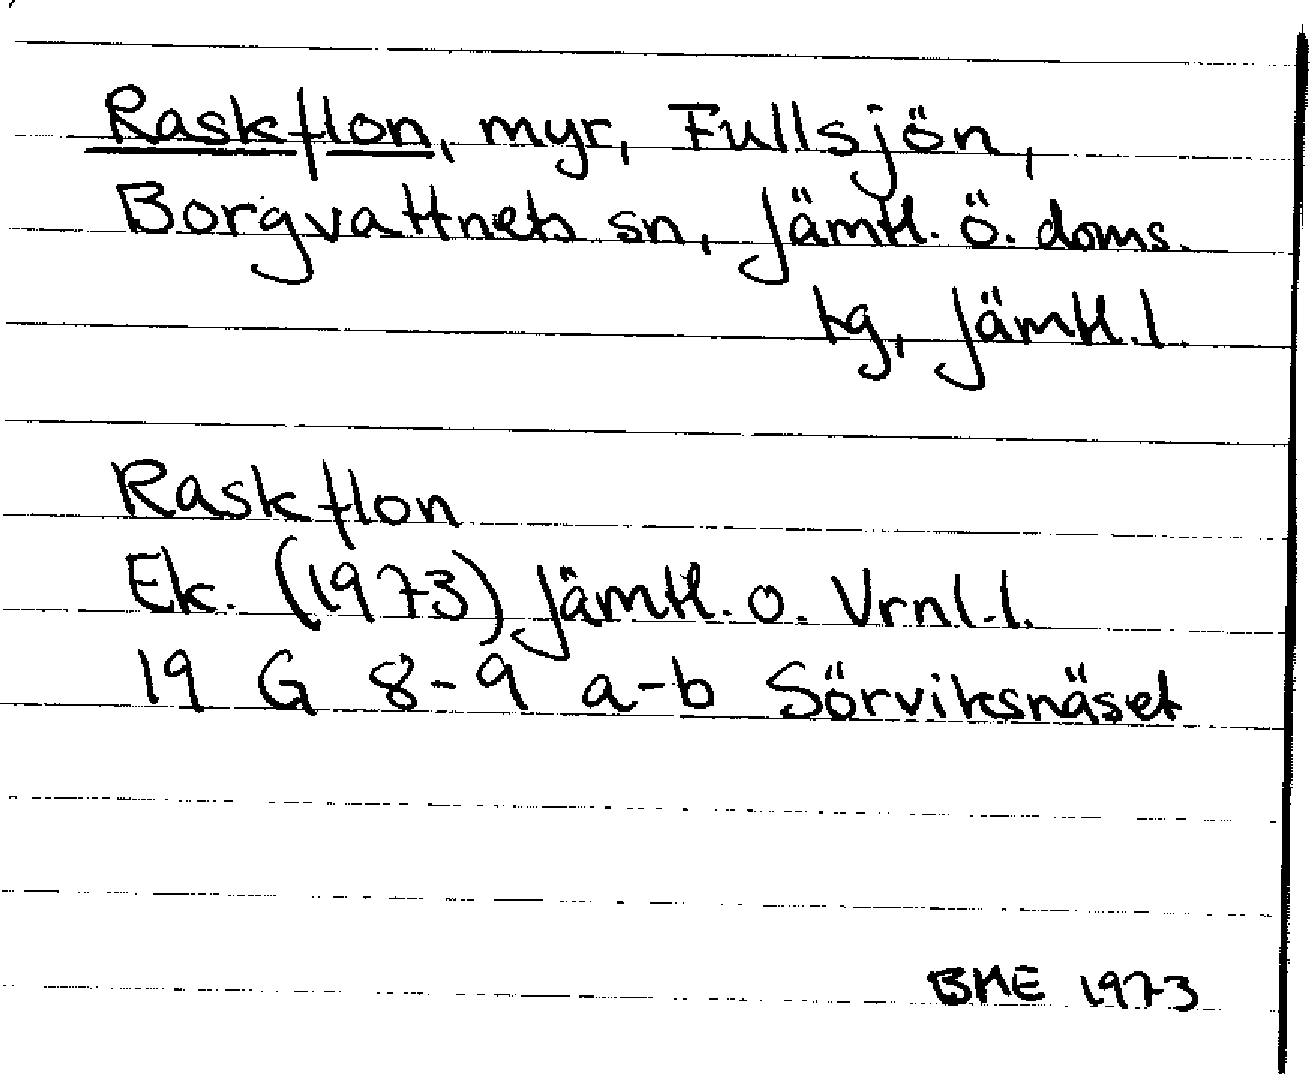 Raskflon, myr, Fullsjön,
Borgvattnets sn, Jämtl. ö. doms.
tg, Jämtl. l.
Raskflon
Ek. (1973) Jämtl. o. Vrnl. l.
19 G 8-9 a-b Sörviksnäset
BME 1973